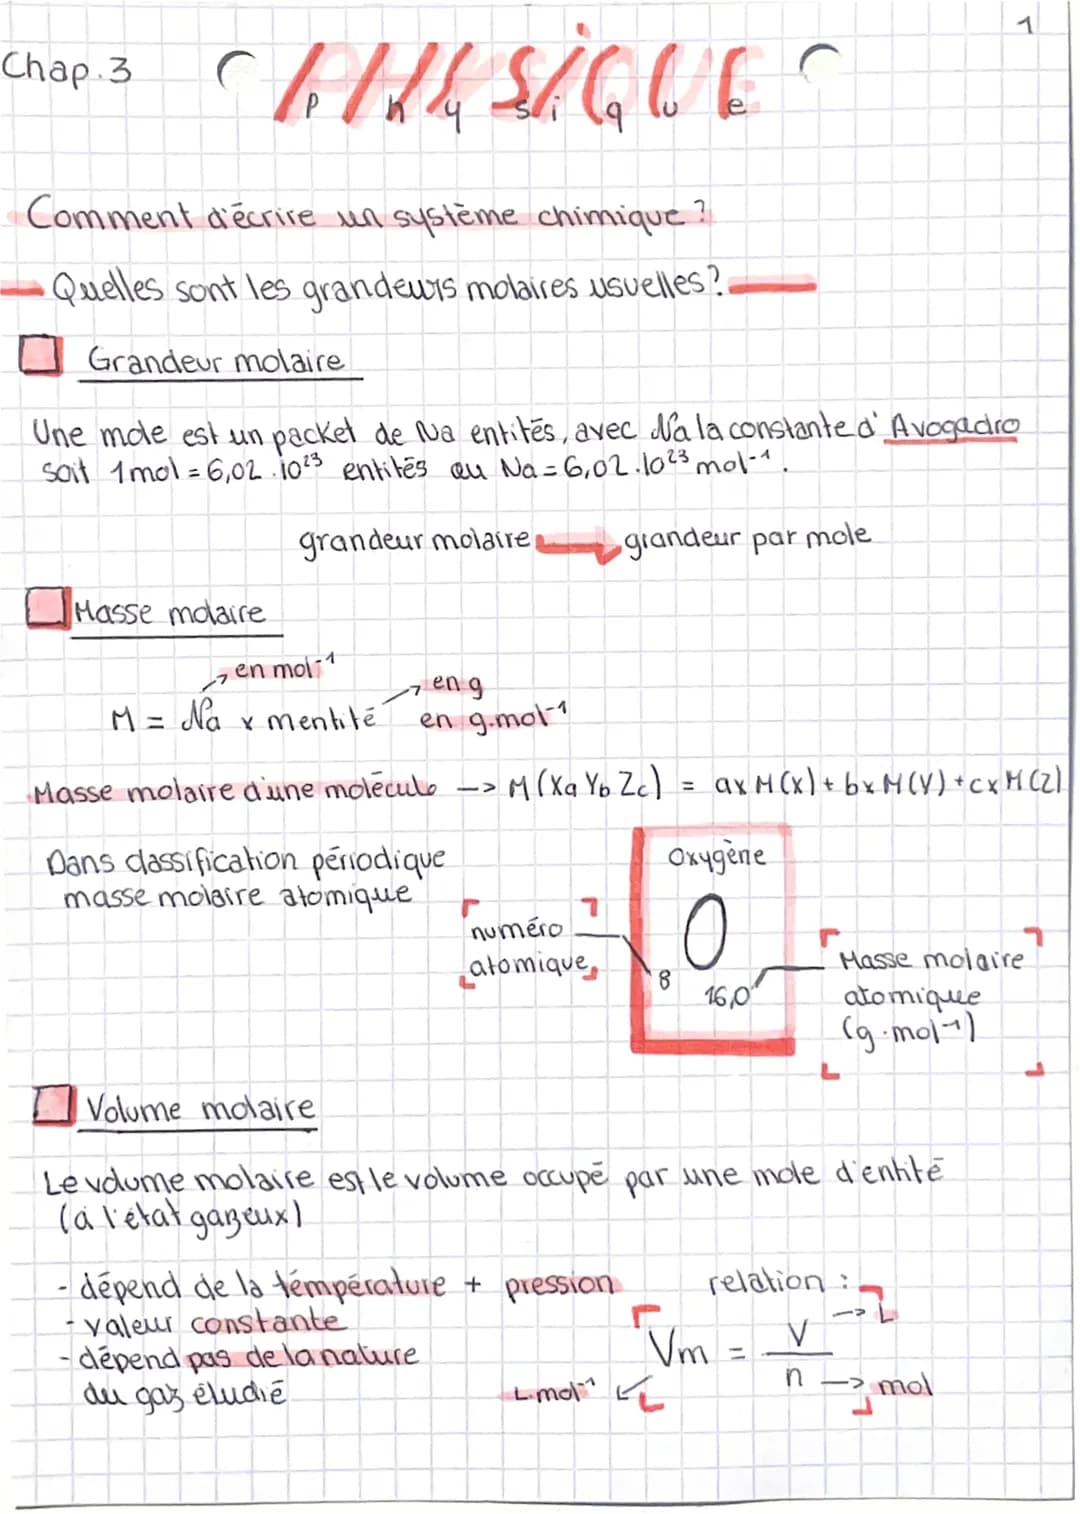 1
Chap.3
PHYSIQUE
physique
Comment d'écrire un système chimique ?
Quelles sont les grandeurs molaires usuelles ?
Grandeur molaire
Une mole est un packet de Na entités, avec Na la constante d' Avogadro
soit 1mol = 6,02 . 10²³ entités ou Na = 6,02 . 10²³ mol⁻¹ .
grandeur molaire grandeur par mole
Masse molaire
en mol⁻¹
en g
M = Na x mentité en g.mol⁻¹
Masse molaire d'une molécule --> M (Xa Yb Zc) = a x M (X) + b x M (Y) + c x M (Z)
Dans classification périodique
masse molaire atomique
Oxygène
O
8
16,0
numéro
atomique
Masse molaire
atomique
(g.mol⁻¹)
Volume molaire
Le volume molaire est le volume occupé par une mole d'entité
(à l'état gazeux)
- dépend de la température + pression
- valeur constante
- dépend pas de la nature
du gaz étudié
relation :
Vm = V / n
--> L
--> mol
L.mol⁻¹